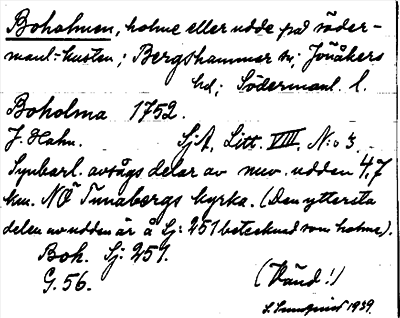 Boholmen, holme eller udde på söder-
manl.-kusten; Bergshammar sn; Jönåkers
hd; Södermanl. l.
Boholma 1752.
J. Hahn. SjA, Litt. VIII, N:o 3.
Synbarl. avsågs delar av nuv. udden 4,7
km. NÖ Tunabergs kyrka. (Den yttersta
delen av udden är å Sj: 251 betecknad som holme).
Boh. Sj: 251.
G. 56. (Vänd!)
S. Sundquist 1939.